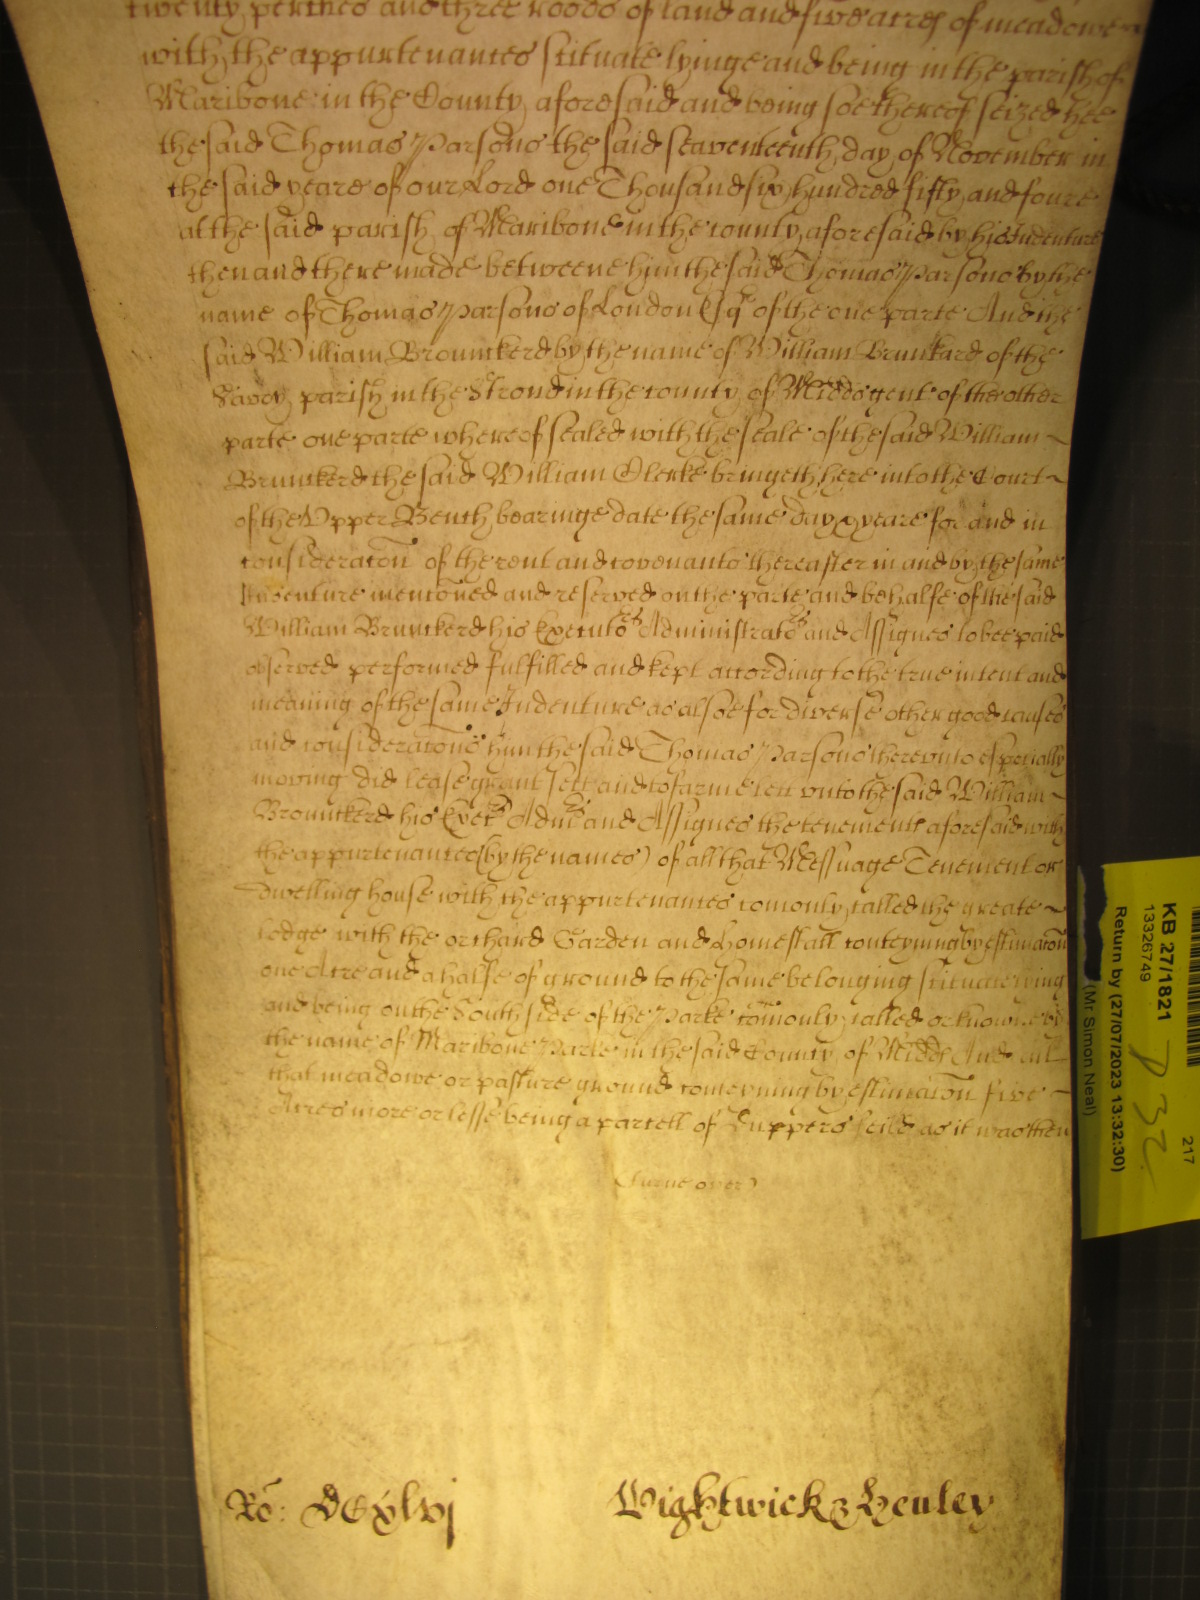 twenty perches and three roods of land and five acres of meadowe
with the appurtenances scituate lyinge and being in the parish of
Maribone in the County aforesaid and being soe thereof seized hee
the said Thomas Parsons the said seaventeenth day of November in
the said yeare of our Lord one Thousand six hundred fifty and foure
at the said parish of Maribone in the county aforesaid by his Indenture
then and there made betweene him the said Thomas Parsons by the
name of Thomas Parsons of London Esqr of the one parte And the
said William Brounckerd by the name of William Brunkard of the
Savoy parish in the Strond in the county of Midds gent of the other
parte one parte whereof sealed with the seale of the said William
Brunckerd the said William Clerke bringeth here into the Court
of the Upper Bench bearinge date the same day & yeare for and in
consideracon of the rent and covenants thereafter in and by the same
Indenture menconed and reserved on the parte and behalfe of the said
William Brunckerd his Executors Administrators and Assignes to bee paid
observed performed fulfilled and kept according to the true intent and
meaning of the same Indenture as alsoe for diverse other good causes
and consideracons him the said Thomas Parsons thereunto especially
moving did lease grant sett and to farme lett unto the said William
Brounckerd his Execrs Admrs and Assignes the tenements aforesaid with
the appurtenances (by the names) of all that Messuage Tenement or
dwelling house with the appurtenances comonly called the greate
lodge with the orchard Garden and homestall conteyning by estimacon
one Acre and a halfe of ground to the same belonging scituate lying
and being on the South side of the Parke comonly called or knowne by
the name of Maribone Parke in the said County of Midds And all
that meadowe or pasture ground conteyning by estimacon five
Acres more or lesse being a parcell of Cuppers feild as it was then
(turne over)
Ro: DCxlvj Wightwick & Henley
KB 27/1821
13326749
Return by (27/07/2023 13:32:30)
(Mr Simon Neal)
217
P 32